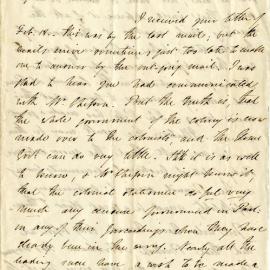 I received your letter of
Feb. . this was by the last mail, but the
mails since sometimes just too late to make
me to answer by the out-going mail. I was
glad to hear you had communicated
with Mr . But the truth is, that
the whole government of the colony is now
made over to the colonists and the Home
Govt can do very little. Still it is as well
to know, & Mr might
that the colonial statesmen do feel very
much any censure pronounced in
in any of their proceedings when they have
clearly been in the wrong. Nearly all the
leading men have a wish to be made a